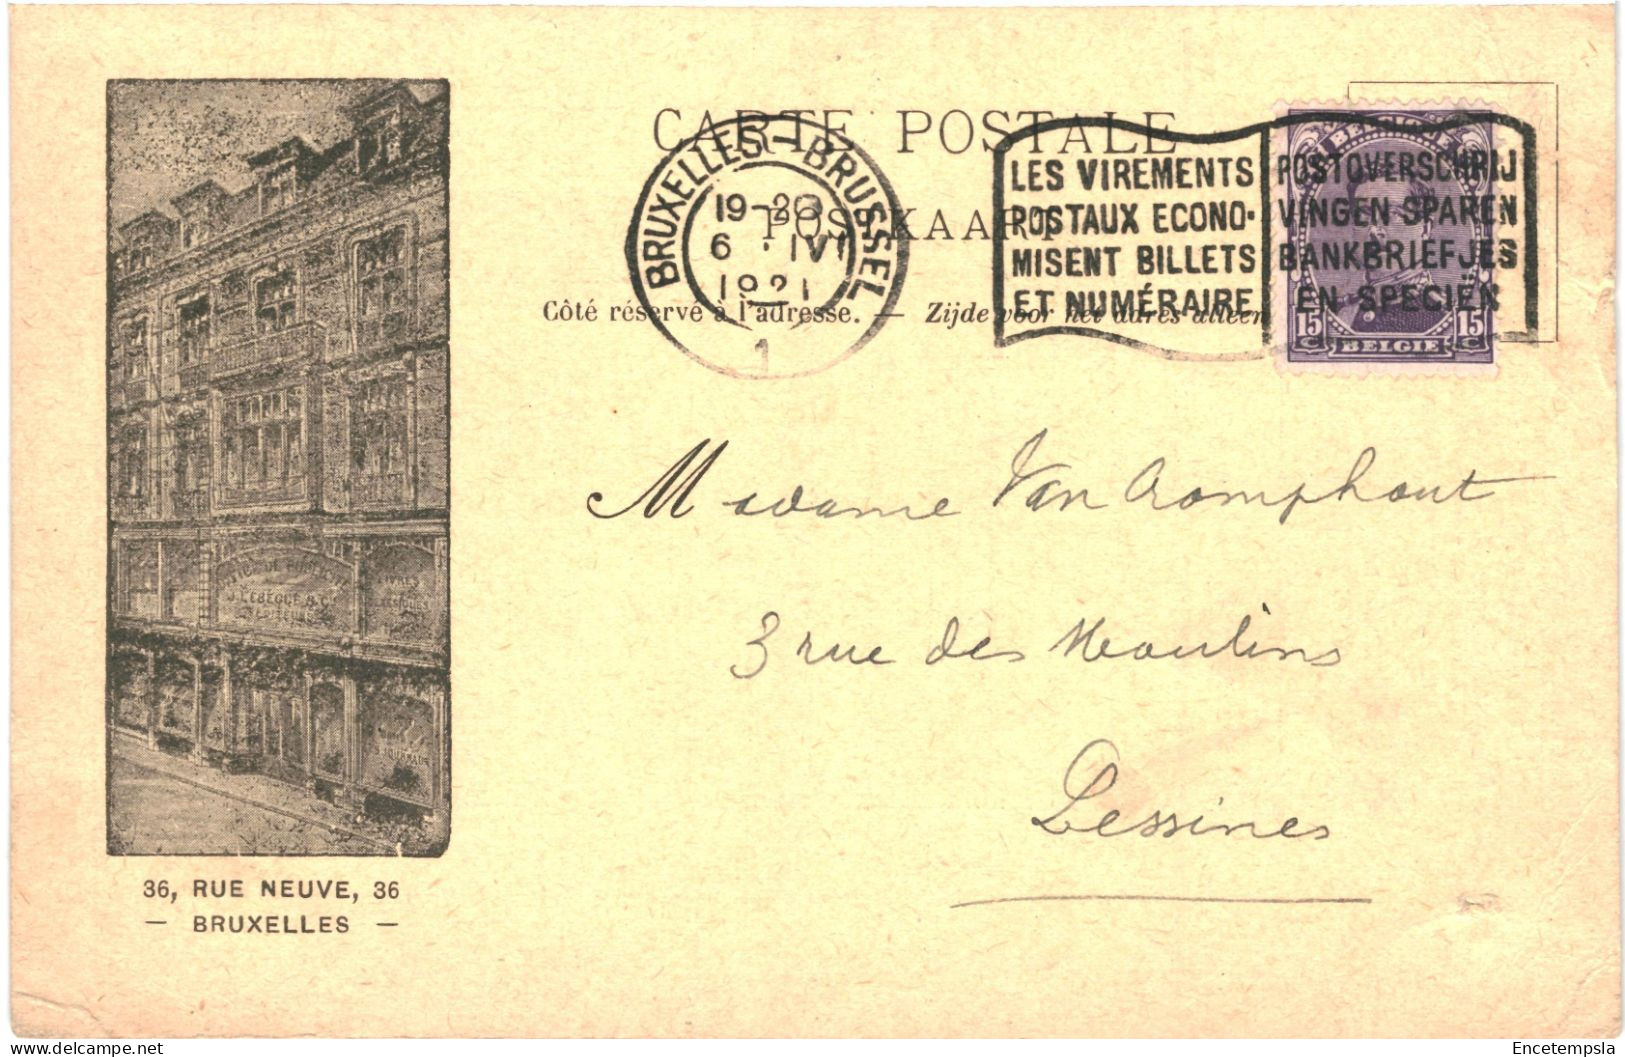 CARTE POSTALE
POSTKAART
Côté réservé à l'adresse. — Zijde voor het adres alleen
BRUXELLES-BRUSSEL
19-20
6 · IV
1921
1
LES VIREMENTS
POSTAUX ECONO-
MISENT BILLETS
ET NUMÉRAIRE
POSTOVERSCHRIJ
VINGEN SPAREN
BANKBRIEFJES
EN SPECIËN
BELGIQUE
15 c 15 c
BELGIE
J. LEBÈGUE & Cie
LIVRES
CLASSIQUES
Madame Van Cromphout
3 rue des Moulins
Lessines
36, RUE NEUVE, 36
— BRUXELLES —
delcampe.net
Encetempsla